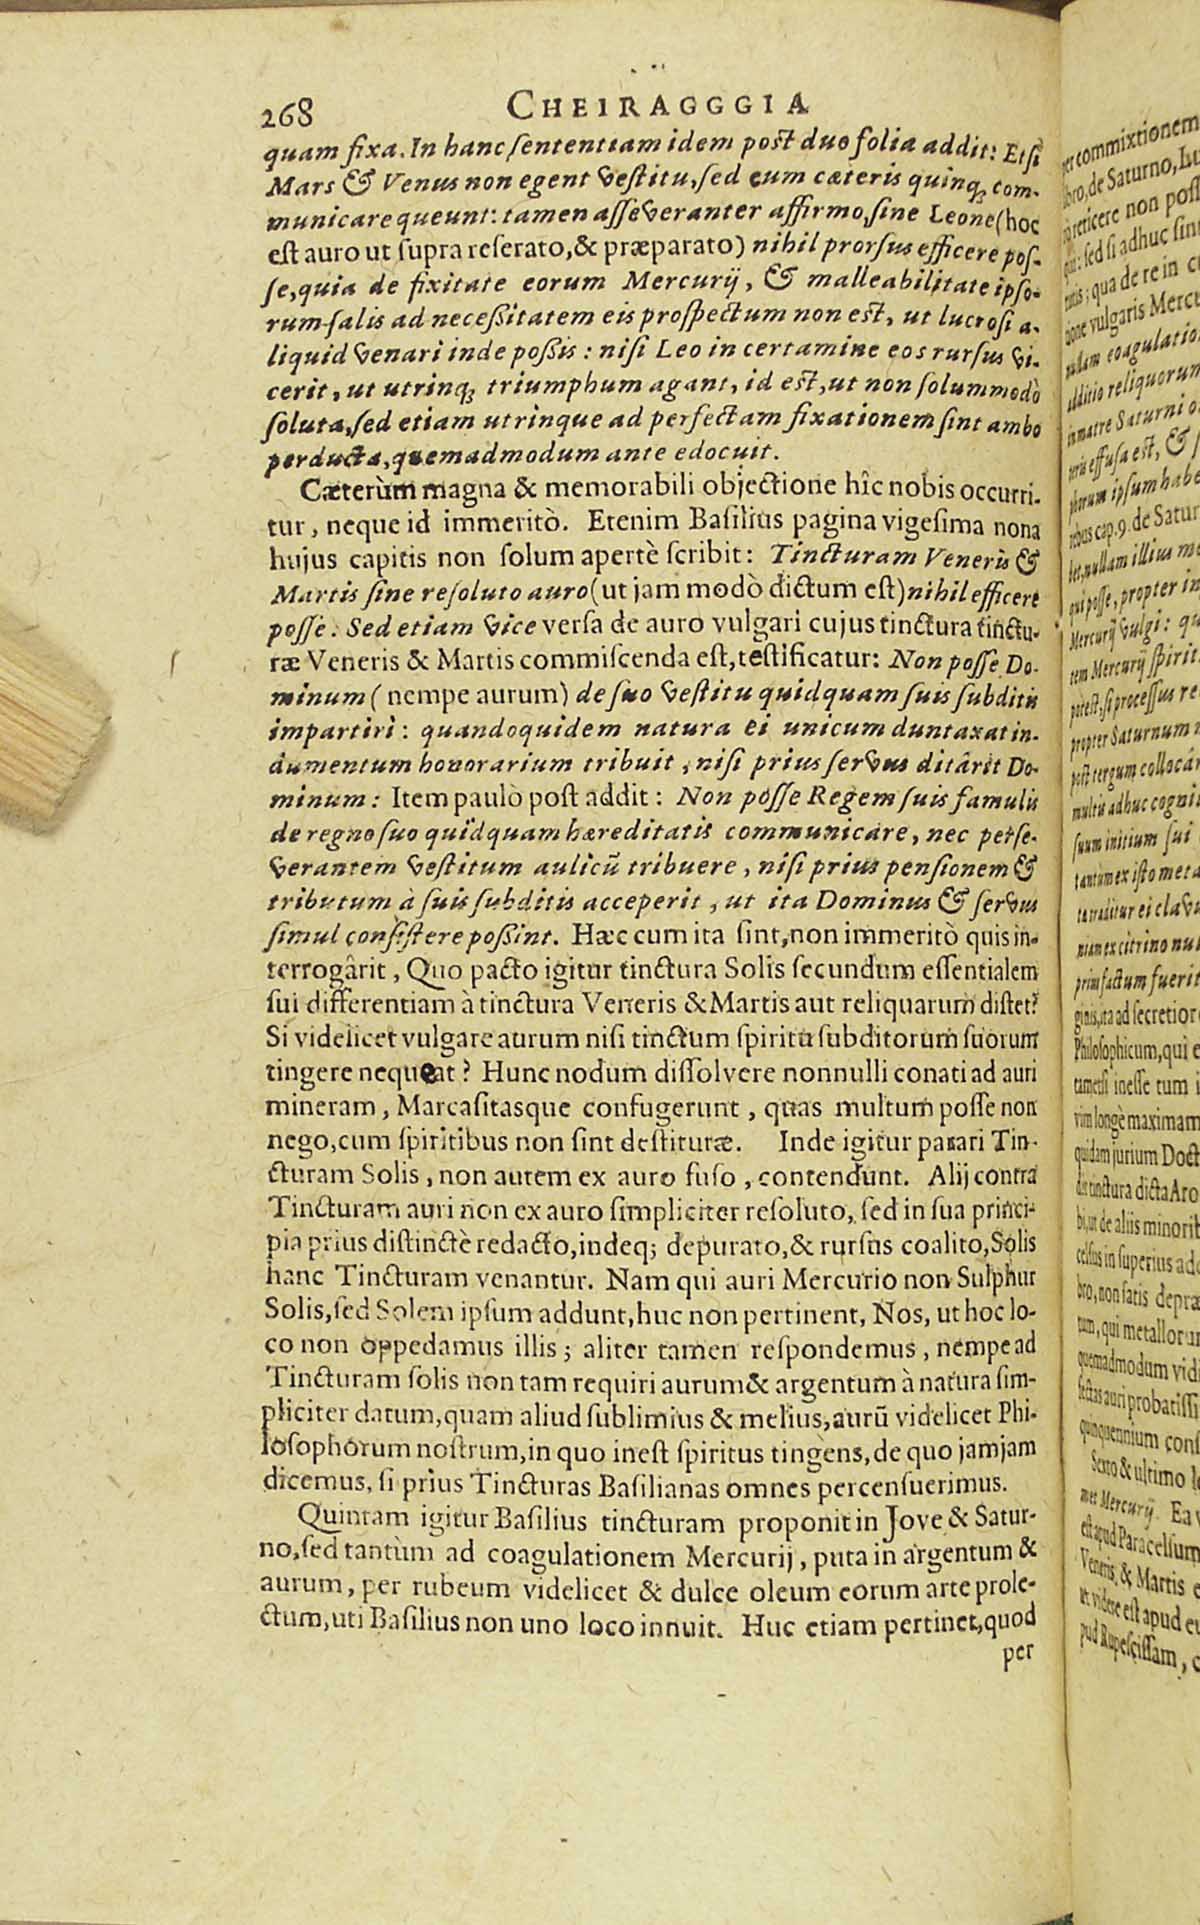 268 CHEIRAGGGIA
quam fixa. In hanc sententiam idem post duo folia addit: Etsi
Mars & Venus non egent vestitu, sed cum cæteris quinq; com-
municare queunt: tamen asseveranter affirmo, sine Leone (hoc
est auro ut supra reserato, & præparato) nihil prorsus efficere pos-
se, quia de fixitate eorum Mercurij, & malleabilitate ipso-
rum salis ad necessitatem eis prospectum non est, ut lucrosi a-
liquid venari inde possis: nisi Leo in certamine eos rursus vi-
cerit, ut utrinq; triumphum agant, id est, ut non solummodò
soluta, sed etiam utrinque ad perfectam fixationem sint ambo
perducta, quemadmodum ante edocuit.
Cæterùm magna & memorabili objectione hîc nobis occurri-
tur, neque id immeritò. Etenim Basilius pagina vigesima nona
hujus capitis non solum apertè scribit: Tincturam Veneris &
Martis sine resoluto auro (ut jam modò dictum est) nihil efficere
posse: Sed etiam vice versa de auro vulgari cujus tinctura tinctu-
ræ Veneris & Martis commiscenda est, testificatur: Non posse Do-
minum (nempe aurum) de suo vestitu quidquam suis subditis
impartiri: quandoquidem natura ei unicum duntaxat in-
dumentum honorarium tribuit, nisi prius servus ditârit Do-
minum: Item paulò post addit: Non posse Regem suis famulis
de regno suo quidquam hæreditatis communicare, nec perse-
verantem vestitum aulicū tribuere, nisi prius pensionem &
tributum à suis subditis acceperit, ut ita Dominus & servus
simul consistere possint. Hæc cum ita sint, non immeritò quis in-
terrogârit, Quo pacto igitur tinctura Solis secundum essentialem
sui differentiam à tinctura Veneris & Martis aut reliquarum distet?
Si videlicet vulgare aurum nisi tinctum spiritu subditorum suorum
tingere nequeat? Hunc nodum dissolvere nonnulli conati ad auri
mineram, Marcasitasque confugerunt, quas multum posse non
nego, cum spiritibus non sint destituræ. Inde igitur parari Tin-
cturam Solis, non autem ex auro fuso, contendunt. Alij contra
Tincturam auri non ex auro simpliciter resoluto, sed in sua princi-
pia prius distinctè redacto, indeq; depurato, & rursus coalito, Solis
hanc Tincturam venantur. Nam qui auri Mercurio non Sulphur
Solis, sed Solem ipsum addunt, huc non pertinent, Nos, ut hoc lo-
co non oppedamus illis; aliter tamen respondemus, nempe ad
Tincturam solis non tam requiri aurum & argentum à natura sim-
pliciter datum, quam aliud sublimius & melius, aurū videlicet Phi-
losophorum nostrum, in quo inest spiritus tingens, de quo jamjam
dicemus, si prius Tincturas Basilianas omnes percensuerimus.
Quintam igitur Basilius tincturam proponit in Jove & Satur-
no, sed tantùm ad coagulationem Mercurij, puta in argentum &
aurum, per rubeum videlicet & dulce oleum eorum arte prole-
ctum, uti Basilius non uno loco innuit. Huc etiam pertinet, quod
per